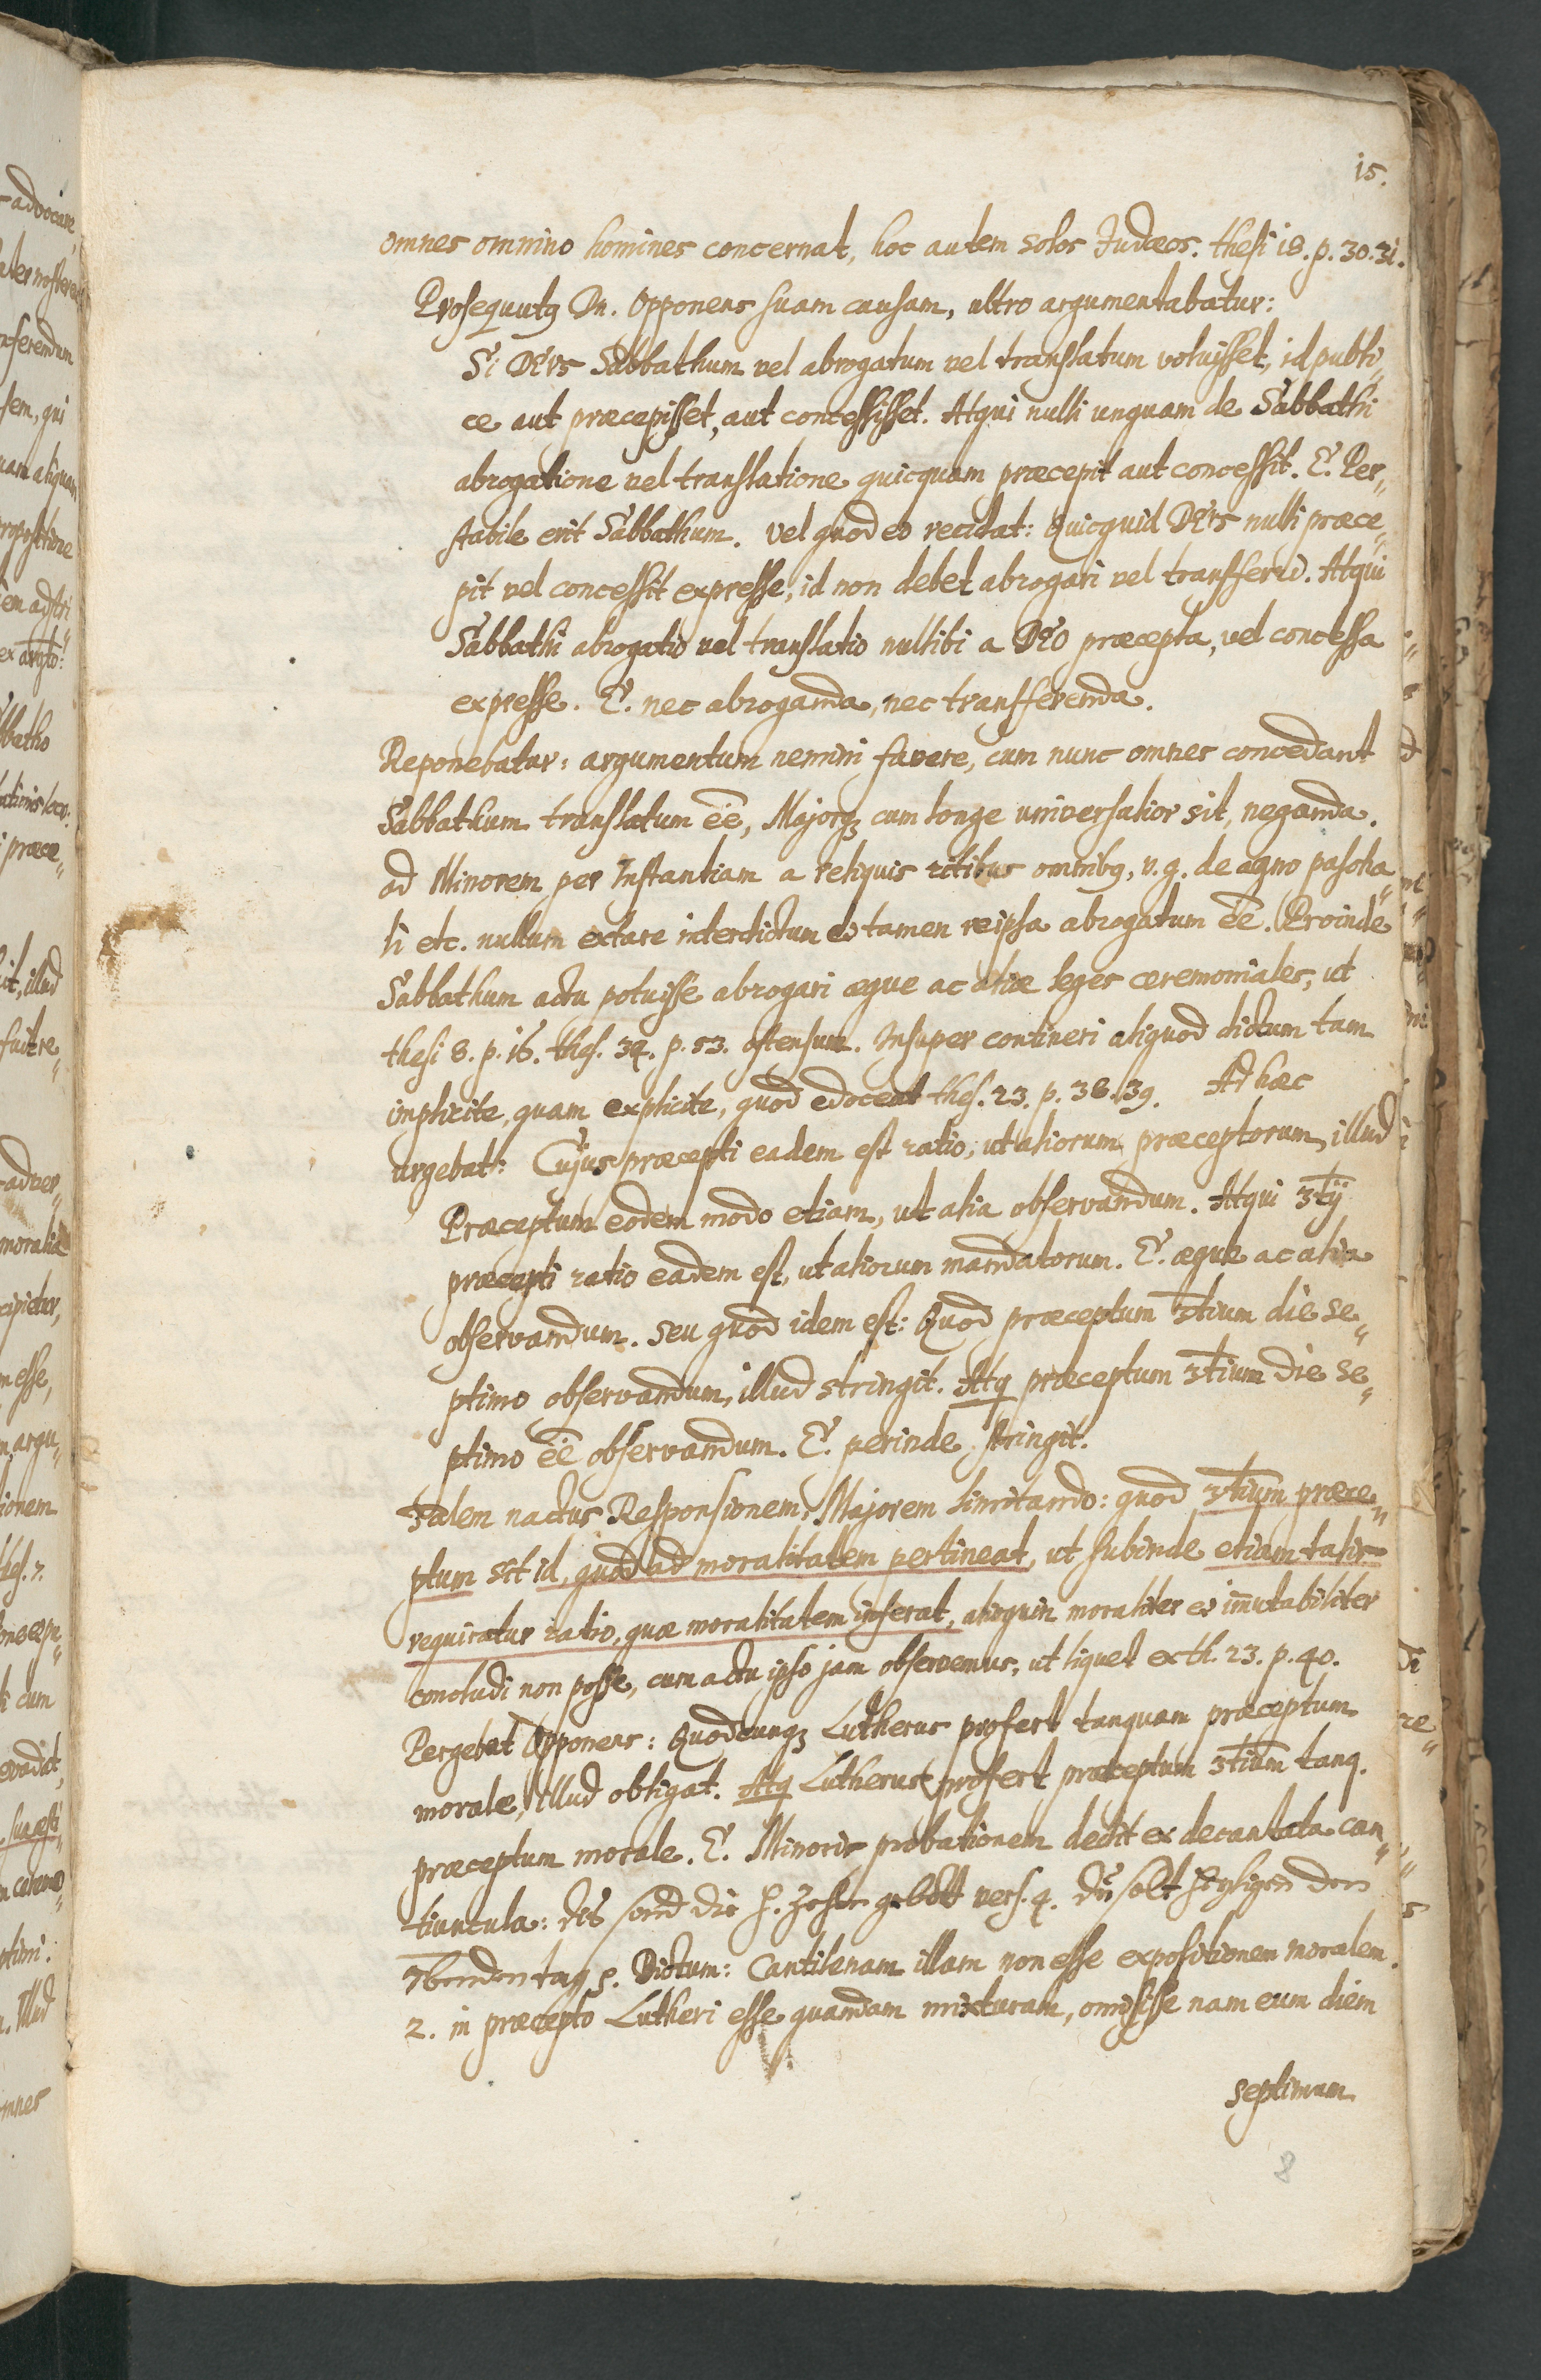 15.
omnes omnino homines concernat, hoc autem solos Judæos. thesi 18. p. 30. 31.
Prosequutq Dn. Opponens suam causam, ultro argumentabatur:
Si DEus Sabbathum vel abrogatum vel translatum voluisset, id publi„
ce aut præcepisset, aut concessisset. Atqui nulli unquam de Sabbathi
abrogatione vel translatione quicquam præcepit aut concessit. E. Per„
stabile erit Sabbathum. Vel quod eo recidat: Quicquid DEus nulli præce„
pit vel concessit expresse, id non debet abrogari vel transferri. Atqui
Sabbathi abrogatio vel translatio nullibi a DEO præcepta, vel concessa
expresse. E. nec abroganda, nec transferenda.
Reponebatur: argumentum nemini favere, cum nunc omnes concedant
Sabbathum translatum eē, Majorq; cum longe universalior sit, neganda.
ad Minorem per Instantiam a reliquis ritibus omnibq, v. g. de agno pascha„
li etc. nullum extare interdictum et tamen reipsa abrogatum eē. Proinde
Sabbathum actu potuisse abrogari æque ac aliæ leges ceremoniales, ut
thesi 8. p. 16. thes. 34. p. 53. ostensum. Insuper contineri aliquod dictum tam
implicite, quam explicite, quod edoceat thes. 23. p. 38. 39. Ad hæc
urgebat: Cujus præcepti eadem est ratio, ut aliorum præceptorum, illud
Præceptum eodem modo etiam, ut alia observandum. Atqui 3tij
præcepti ratio eadem est, ut aliorum mandatorum. E. æque ac alia
observandum. Seu quod idem est: Quod præceptum 3tium die se„
ptimo observandum, illud stringit. Atq præceptum 3tium die se„
ptimo eē observandum. E. perinde stringit.
Talem nactus Responsionem, Majorem limitando: quod 3tium præce„
ptum sit id, quod ad moralitatem pertineat, ut subinde etiam talis
requiratur ratio, quæ moralitatem inferat, alioquin moraliter et im̄utabiliter
concludi non posse, cum actu ipso jam observemus, ut liquet ex th. 23. p. 40.
Pergebat Opponens: Quodcunq; Lutherus profert tanquam præceptum
morale, illud obligat. Atq Lutherus profert præceptum 3tium tanq.
præceptum morale. E. Minoris probationem dedit ex decantata can„
tiuncula: dis sind die H. Zehn gebott vers. 4. du solt heyligen den
7benden tag p. Dictum: Cantilenam illam non esse expositionem moralem.
2. in præcepto Lutheri esse quandam mixturam, omisisse nam eum diem
septimum
8